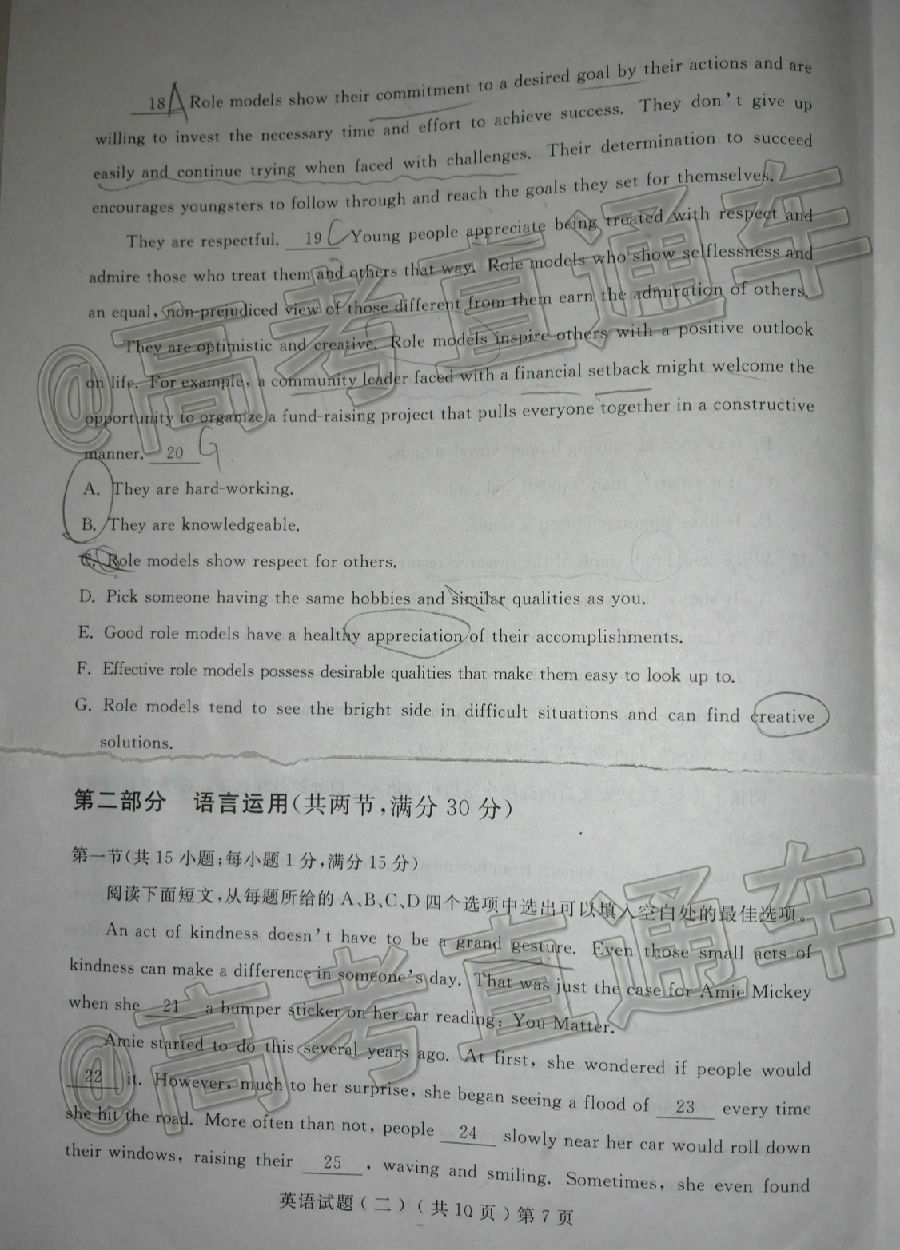 18 A Role models show their commitment to a desired goal by their actions and are
willing to invest the necessary time and effort to achieve success. They don't give up
easily and continue trying when faced with challenges. Their determination to succeed
encourages youngsters to follow through and reach the goals they set for themselves.
They are respectful. 19 C Young people appreciate being treated with respect and
admire those who treat them and others that way. Role models who show selflessness and
an equal, non-prejudiced view of those different from them earn the admiration of others.
They are optimistic and creative. Role models inspire others with a positive outlook
on life. For example, a community leader faced with a financial setback might welcome the
opportunity to organize a fund-raising project that pulls everyone together in a constructive
manner. 20 G
A. They are hard-working.
B. They are knowledgeable.
C. Role models show respect for others.
D. Pick someone having the same hobbies and similar qualities as you.
E. Good role models have a healthy appreciation of their accomplishments.
F. Effective role models possess desirable qualities that make them easy to look up to.
G. Role models tend to see the bright side in difficult situations and can find creative
solutions.
@高考直通车
第二部分 语言运用(共两节,满分30分)
第一节(共15小题;每小题1分,满分15分)
阅读下面短文,从每题所给的A、B、C、D四个选项中选出可以填入空白处的最佳选项。
An act of kindness doesn't have to be a grand gesture. Even those small acts of
kindness can make a difference in someone's day. That was just the case for Amie Mickey
when she 21 a bumper sticker on her car reading: You Matter.
Amie started to do this several years ago. At first, she wondered if people would
22 it. However, much to her surprise, she began seeing a flood of 23 every time
she hit the road. More often than not, people 24 slowly near her car would roll down
their windows, raising their 25, waving and smiling. Sometimes, she even found
@高考直通车
英语试题(二)(共10页)第7页